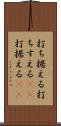 打ち据える打
ちすえる
打据える